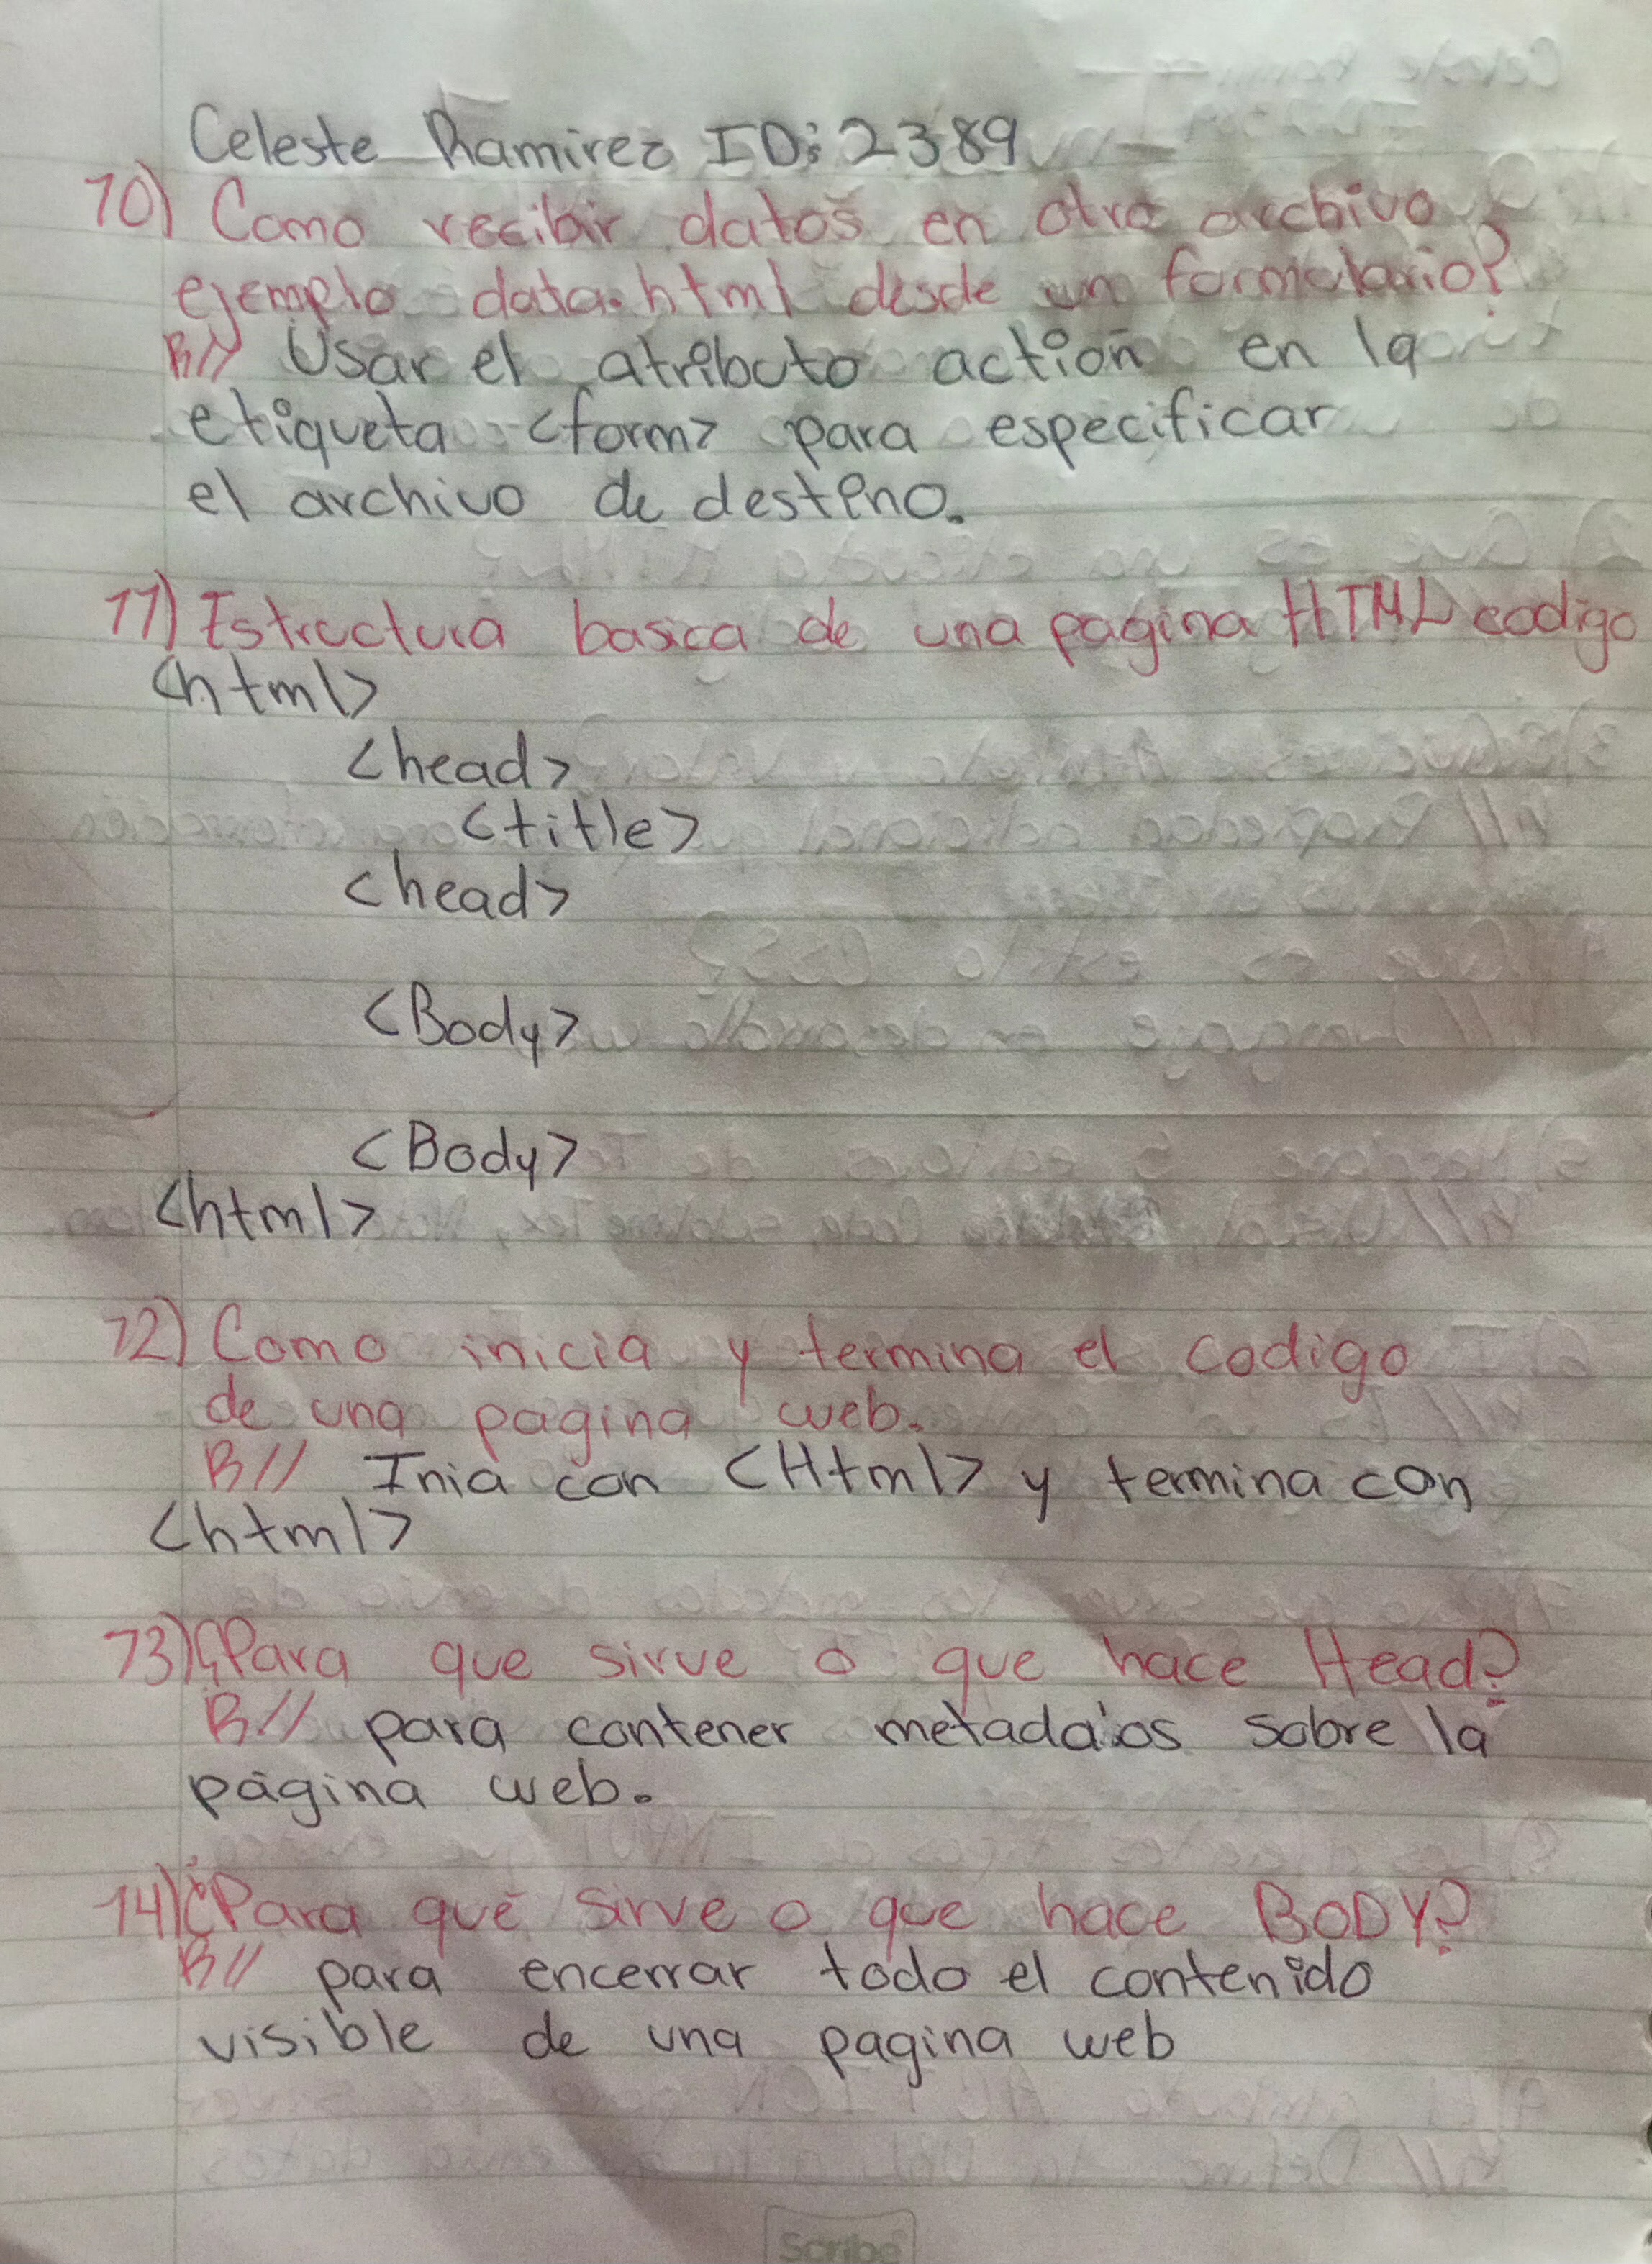 Celeste Ramirez ID: 2389
10) Como recibir datos en otro archivo
ejemplo data.html desde un formulario?
R// Usar el atributo action en la
etiqueta <form> para especificar
el archivo de destino.
11) Estructura basica de una pagina HTML codigo
<html>
<head>
<title>
<head>
<Body>
<Body>
<html>
12) Como inicia y termina el codigo
de una pagina web.
R// Inia con <Html> y termina con
<html>
13) ¿Para que sirve o que hace Head?
R// para contener metadatos sobre la
página web.
14) ¿Para que sirve o que hace BODY?
R// para encerrar todo el contenido
visible de una pagina web
Scribe